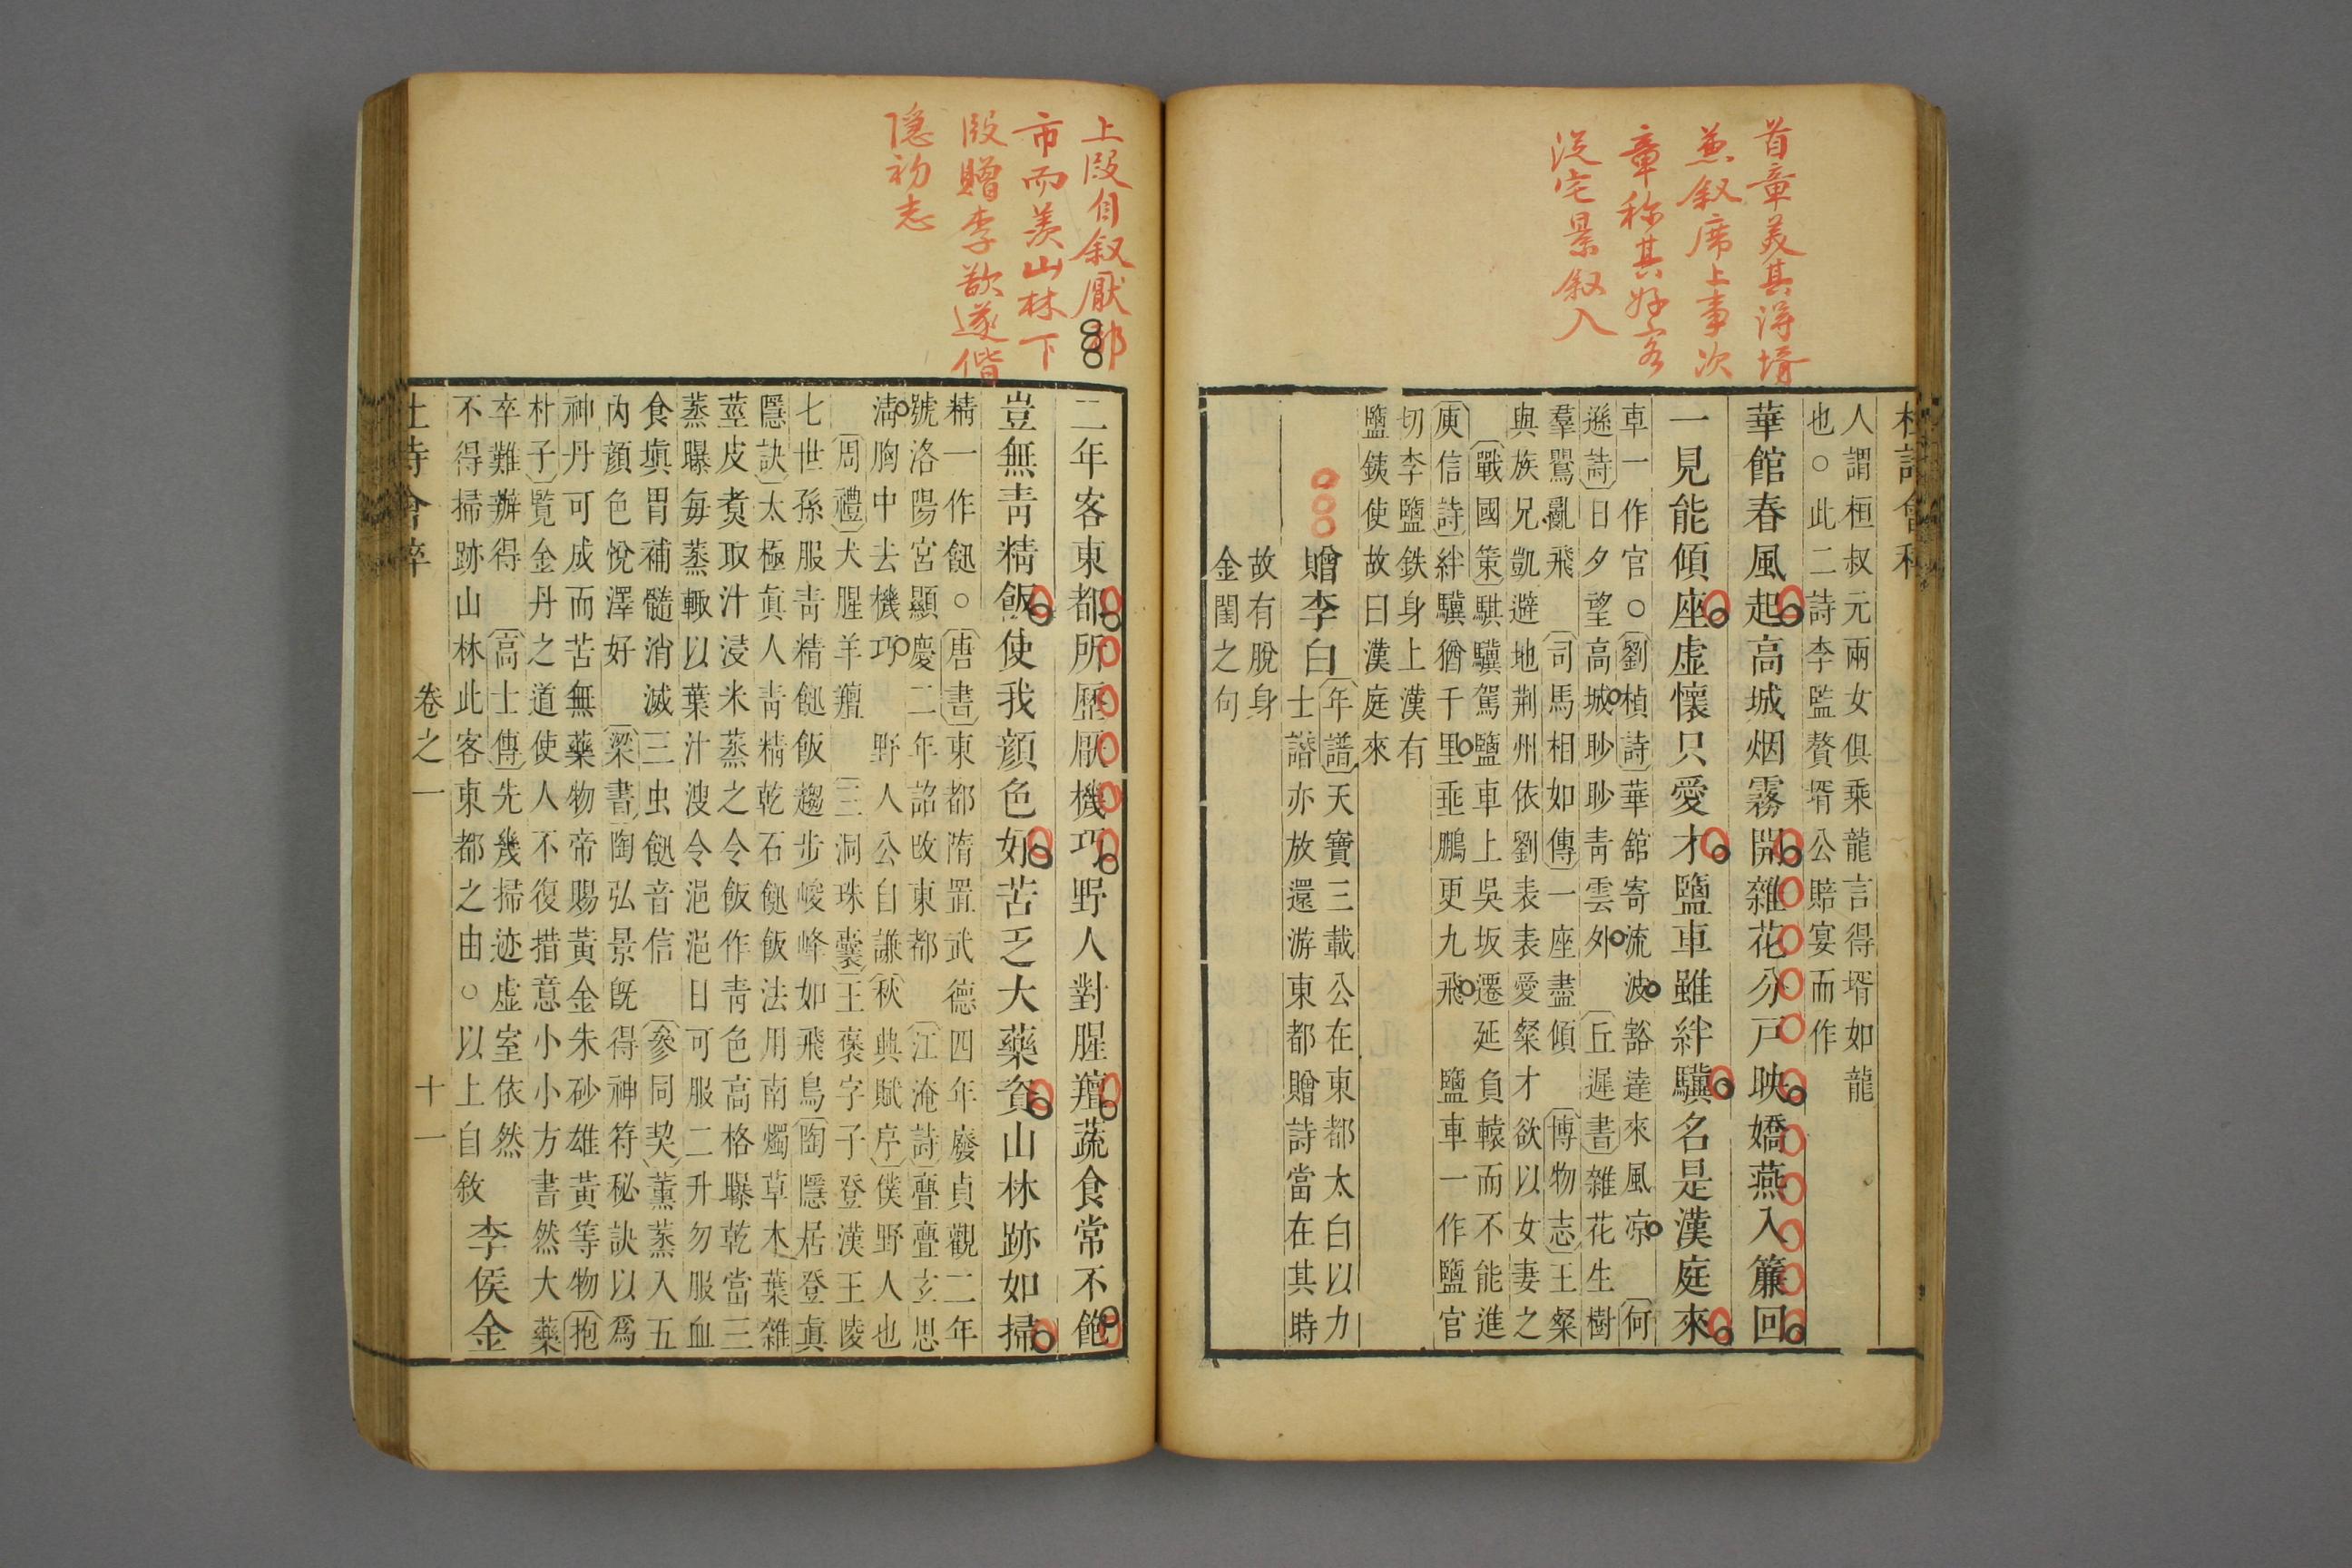 首章美其得壻
兼叙席上事次
章称其好客
從宅景叙入
人謂桓叔元兩女俱乘龍言得壻如龍
也○此二詩李監贅壻公賠宴而作
華館春風起高城烟霧開雜花分戸映嬌燕入簾回
一見能傾座虛懷只愛才鹽車雖絆驥名是漢庭來
車一作官○劉楨詩華舘寄流波豁達來風凉 何
遜詩日夕望高城眇眇靑雲外 丘遲書雜花生樹
羣鸎亂飛 司馬相如傳一座盡傾 博物志王粲
與族兄凱避地荆州依劉表表愛粲才欲以女妻之
戰國策騏驥駕鹽車上吳坂遷延負轅而不能進
庾信詩絆驥猶千里垂鵬更九飛 鹽車一作鹽官
切李鹽鉄身上漢有
鹽鉄使故曰漢庭來
贈李白
年譜天寶三載公在東都太白以力
士譖亦放還游東都贈詩當在其時
故有脫身
金閨之句
上段自叙厭都
市而羨山林下
段贈李欲遂偕
隱初志
二年客東都所歷厭機巧野人對腥羶蔬食常不飽
豈無靑精飯使我顔色好苦乏大藥資山林跡如掃
精一作䭀○唐書東都隋置武德四年廢貞觀二年
號洛陽宮顯慶二年詔改東都 江淹詩亹亹玄思
淸胸中去機巧 野人公自謙秋興賦序僕野人也
周禮犬腥羊羶 三洞珠囊王褒字子登漢王陵
七世孫服靑精䭀飯趨步峻峰如飛鳥陶隱居登眞
隱訣太極眞人靑精乾石䭀飯法用南燭草木葉雜
莖皮煑取汁浸米蒸之令飯作靑色高格曝乾當三
蒸曝每蒸輙以葉汁溲令浥浥日可服二升勿服血
食塡胃補髓消滅三虫䭀音信 參同契薰蒸入五
內顔色悅澤好 梁書陶弘景旣得神符秘訣以爲
神丹可成而苦無藥物帝賜黃金朱砂雄黃等物抱
朴子覽金丹之道使人不復措意小小方書然大藥
卒難辦得 高士傳先幾掃迹虛室依然
不得掃跡山林此客東都之由○以上自敘 李侯金
卷之一 十一